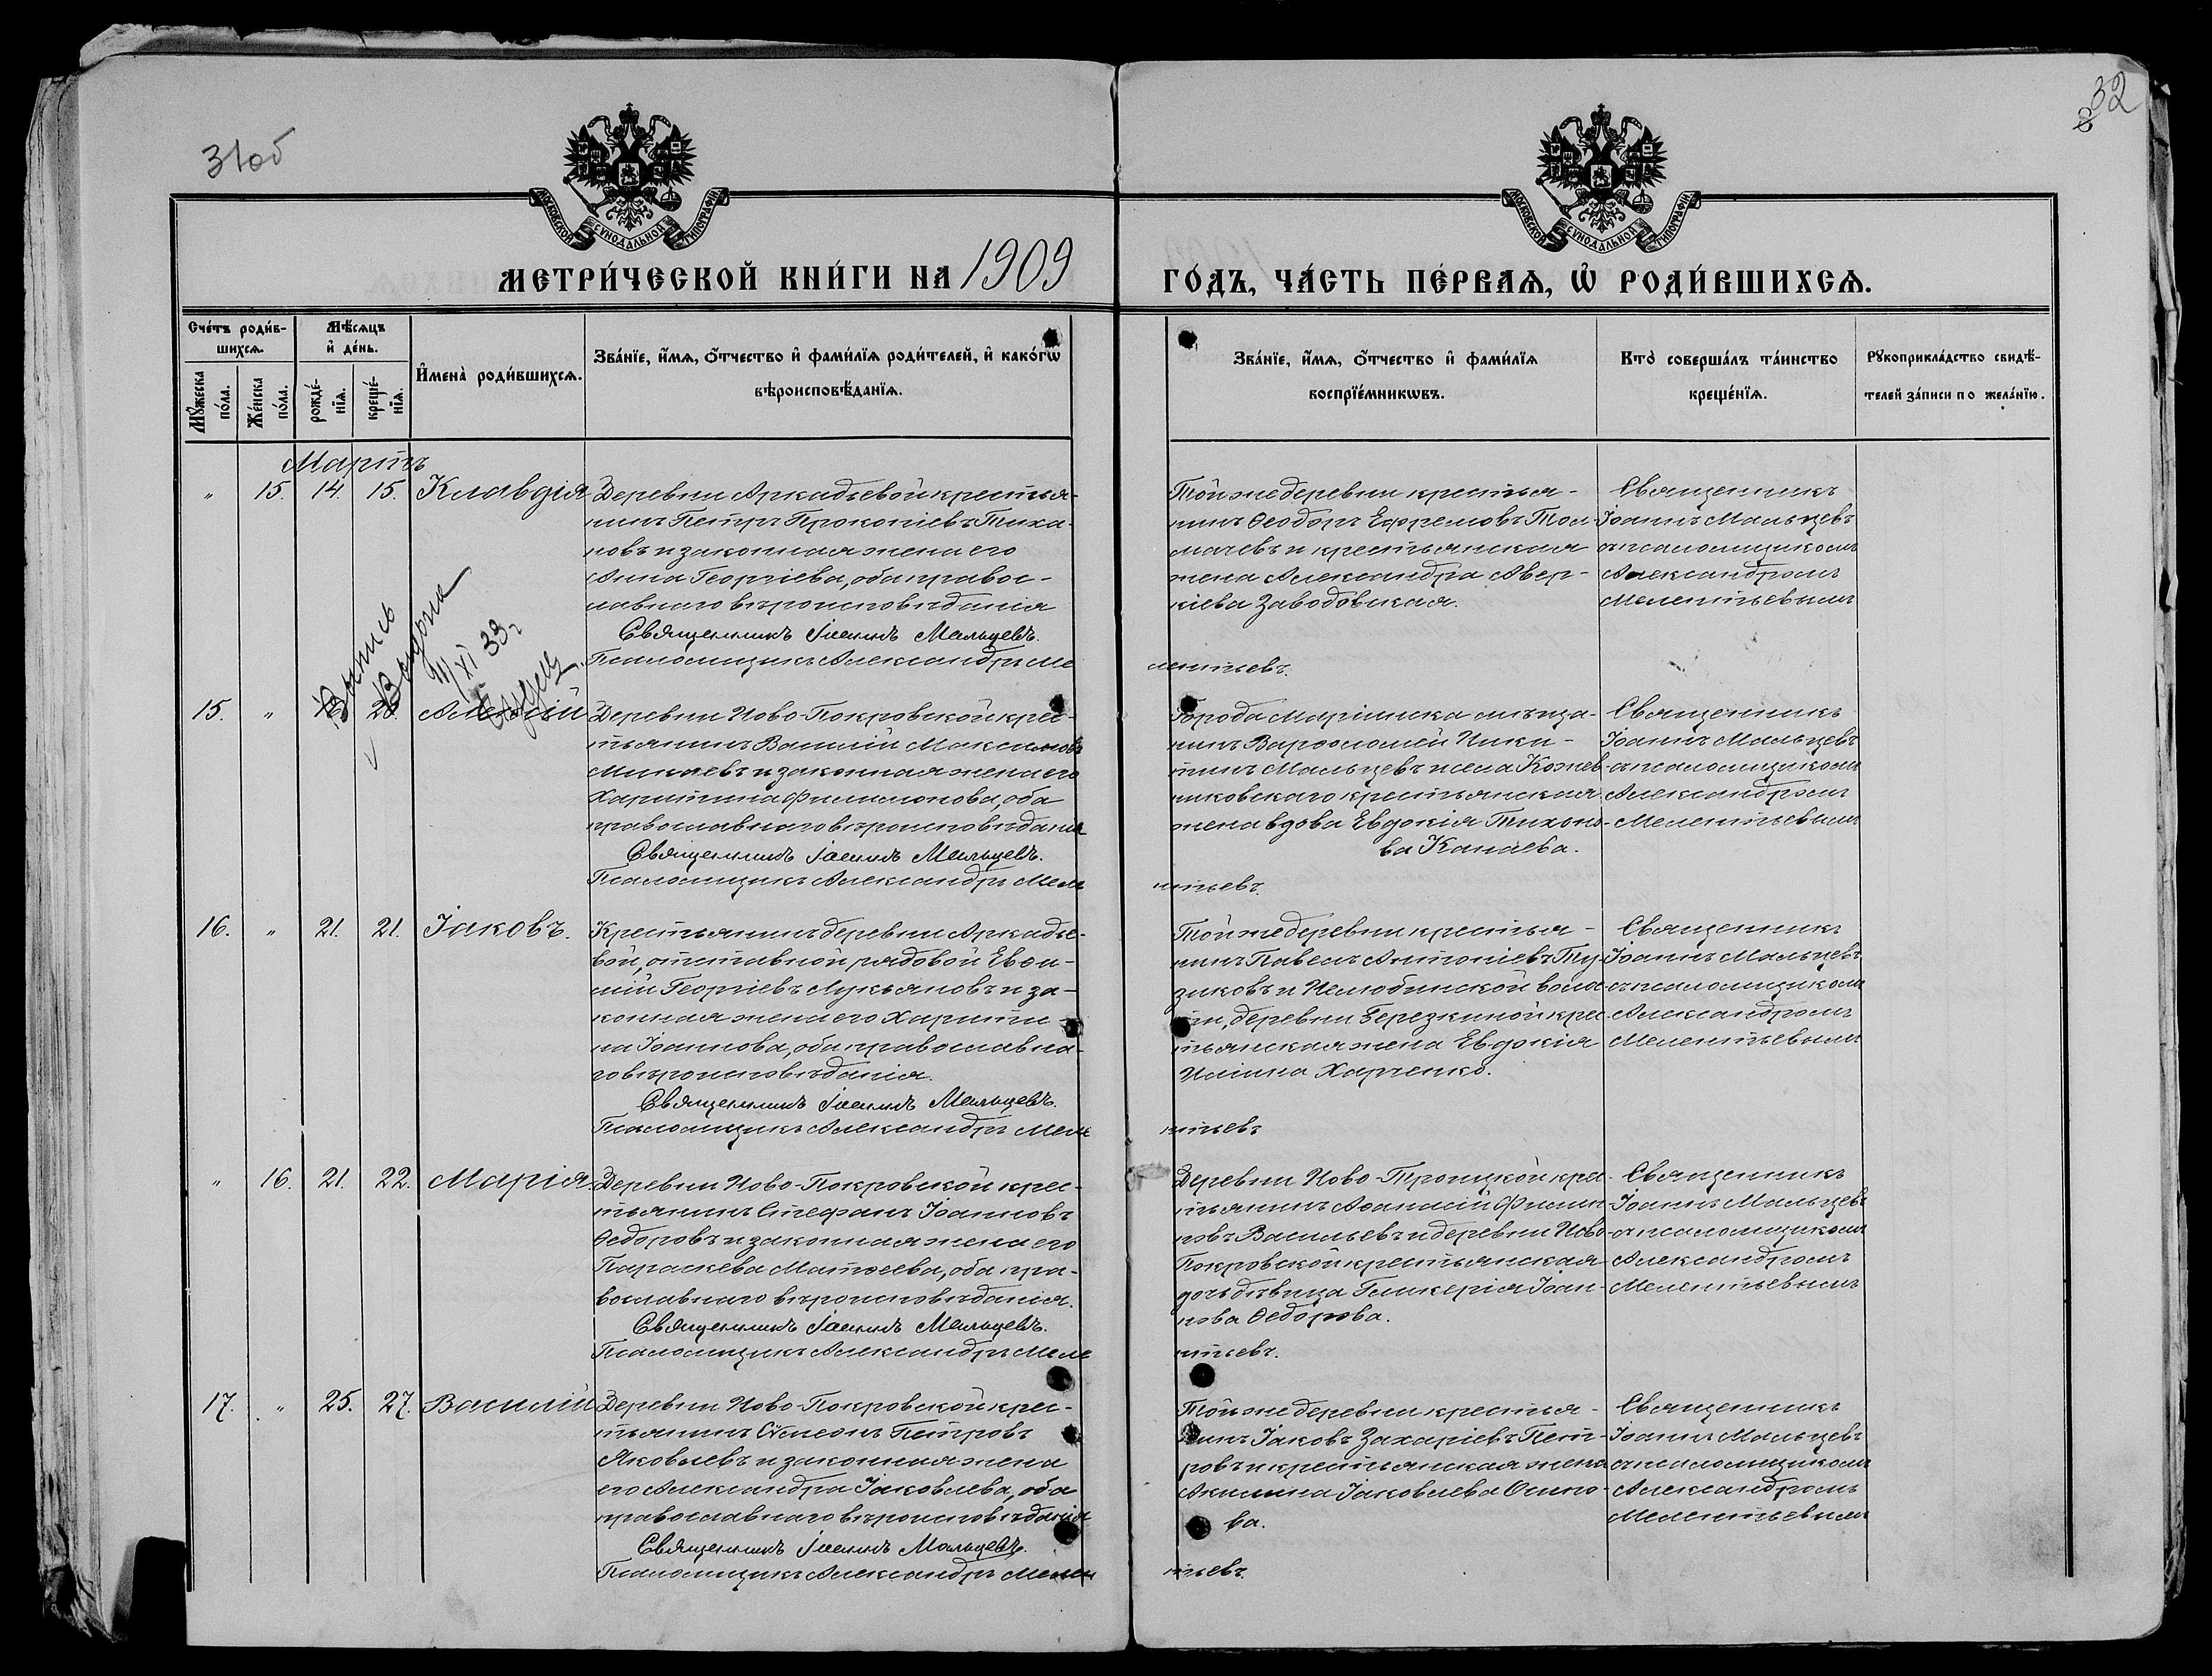 31об
32
МОСКОВСКОЙ СѴНОДАЛЬНОЙ ТИПОГРАФІИ
МОСКОВСКОЙ СѴНОДАЛЬНОЙ ТИПОГРАФІИ
МЕТРИ́ЧЕСКОЙ КНИ́ГИ НА 1909
ГО́ДЪ, ЧА́СТЬ ПЕ́РВАѦ, Ѡ҆ РОДИ́ВШИХСѦ.
Сче́тъ роди́в-
шихсѧ.
Мѣ́сѧцъ
и҆ де́нь.
Мꙋ́жеска по́ла.
Же́нска по́ла.
рожде́-
нїѧ.
креще́-
нїѧ.
И҆мена̀ роди́вшихсѧ.
Зва́нїе, и҆́мѧ, ѻ҆́тчество и҆ фами́лїѧ роди́телей, и҆ како́гѡ
вѣроисповѣ́данїѧ.
Зва́нїе, и҆́мѧ, ѻ҆́тчество и҆ фами́лїѧ
воспрїе́мникѡвъ.
Кто̀ соверша́лъ та́инство
креще́нїѧ.
Рꙋкоприкла́дство свидѣ́-
телей за́писи по жела́нїю.
Мартъ
" 15. 14. 15. Клавдія
Деревни Аркадьевой крестья-
нинъ Петръ Прокопіевъ Тиха-
новъ и законная жена его
Анна Георгіева, оба правос-
лавнаго вѣроисповѣданія
Священникъ Іоаннъ Мальцевъ.
Псаломщикъ Александръ Ме
лентьевъ.
Той же деревни крестья-
нинъ Ѳеодоръ Ефремовъ Тол-
мачевъ и крестьянская
жена Александра Авер-
кіева Заводовская.
Священникъ
Іоаннъ Мальцевъ
съ псаломщикомъ
Александромъ
Мелентьевымъ
Выпись
XI 33 г
15. " 20. Алексій
Деревни Ново-Покровской крес-
тьянинъ Василій Максимовъ
Минаевъ и законная жена его
Харитина Филимонова, оба
православнаго вѣроисповѣданія
Священникъ Іоаннъ Мальцевъ.
Псаломщикъ Александръ Мелен
тьевъ.
Города Маріинска мѣща-
нинъ Варѳоломей Ники-
тинъ Мальцевъ и села Кожев-
никовскаго крестьянская
жена вдова Евдокія Тихоно-
ва Канаева.
Священникъ
Іоаннъ Мальцевъ
съ псаломщикомъ
Александромъ
Мелентьевымъ
16. " 21. 21. Іаковъ.
Крестьянинъ деревни Аркадье-
вой, отставной рядовой Евѳи-
мій Георгіевъ Лукьяновъ и за-
конная жена его Харити-
на Іоаннова, оба православна-
го вѣроисповѣданія.
Священникъ Іоаннъ Мальцевъ.
Псаломщикъ Александръ Мелен
тьевъ
Той же деревни крестья-
нинъ Павелъ Антоніевъ Ту-
зиковъ и Нелюбинской волос-
ти, деревни Березкиной крес-
тьянская жена Евдокія
Ильина Харченко.
Священникъ
Іоаннъ Мальцевъ
съ псаломщикомъ
Александромъ
Мелентьевымъ
" 16. 21. 22. Марія.
Деревни Ново-Покровской крес-
тьянинъ Стефанъ Іоанновъ
Ѳедоровъ и законная жена его
Параскева Матѳеева, оба пра-
вославнаго вѣроисповѣданія.
Священникъ Іоаннъ Мальцевъ.
Псаломщикъ Александръ Меле
нтьевъ.
Деревни Ново-Троицкой крес-
тьянинъ Аѳанасій Филип-
повъ Васильевъ и деревни Ново-
Покровской крестьянская
дочь дѣвица Гликерія Іоан-
нова Ѳедорова.
Священникъ
Іоаннъ Мальцевъ
съ псаломщикомъ
Александромъ
Мелентьевымъ
17. " 25. 27. Василій
Деревни Ново-Покровской крес-
тьянинъ Сѵмеонъ Петровъ
Яковлевъ и законная жена
его Александра Іаковлева, оба
православнаго вѣроисповѣданія
Священникъ Іоаннъ Мальцевъ.
Псаломщикъ Александръ Мелен
тьевъ.
Той же деревни крестья-
нинъ Іаковъ Захаріевъ Пет-
ровъ и крестьянская жена
Акилина Іаковлева Осипо-
ва.
Священникъ
Іоаннъ Мальцевъ
съ псаломщикомъ
Александромъ
Мелентьевымъ